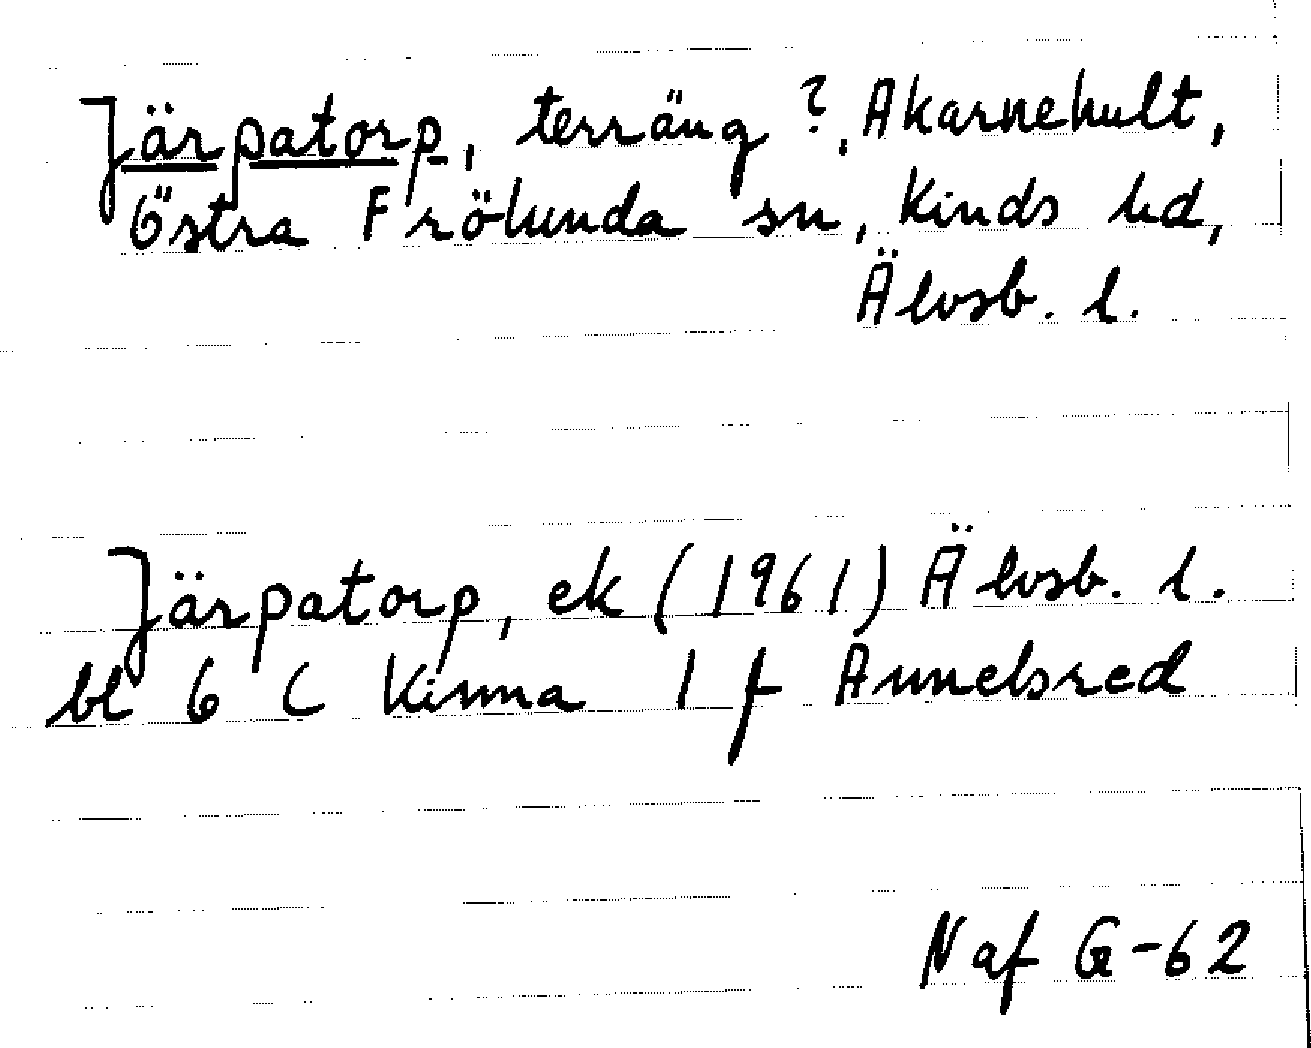 Järpatorp, terräng ?, Akarnehult,
Östra Frölunda sn, Kinds hd,
Älvsb. l.
Järpatorp, ek (1961) Älvsb. l.
bl 6 C Kinna 1 f Annelsred
N af G-62